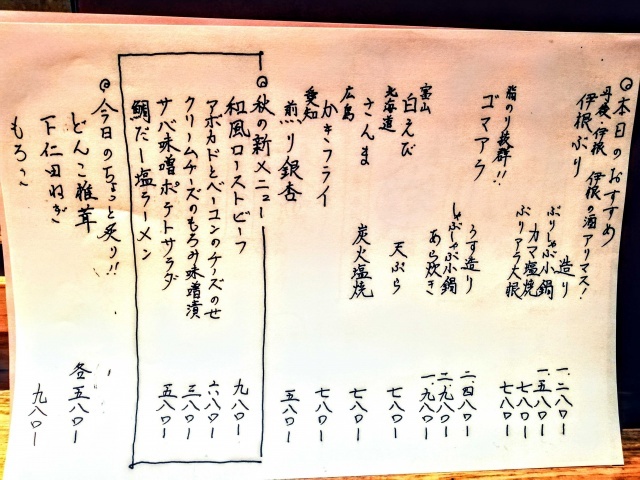 ◎本日のおすすめ
丹後・伊根 伊根の酒アリマス!
伊根ぶり
造り 一.二八〇ー
ぶりしゃぶ小鍋 一.五八〇ー
カマ塩焼 七八〇ー
ぶりアラ大根 七八〇ー
脂のり抜群!!
ゴマアラ
うす造り 二.四八〇ー
しゃぶしゃぶ小鍋 二.九八〇ー
あら炊き 一.九八〇ー
富山 白えび 天ぷら 七八〇ー
北海道 さんま 炭火塩焼 七八〇ー
広島 かきフライ 七八〇ー
愛知 煎り銀杏 五八〇ー
◎秋の新メニュー
和風ローストビーフ 九八〇ー
アボカドとベーコンのチーズのせ 六八〇ー
クリームチーズのもろみ味噌漬 三八〇ー
サバ味噌ポテトサラダ 五八〇ー
鯛だし塩ラーメン
◎今日のちょっと炙り!!
どんこ椎茸
下仁田ねぎ 各五八〇ー
九八〇ー